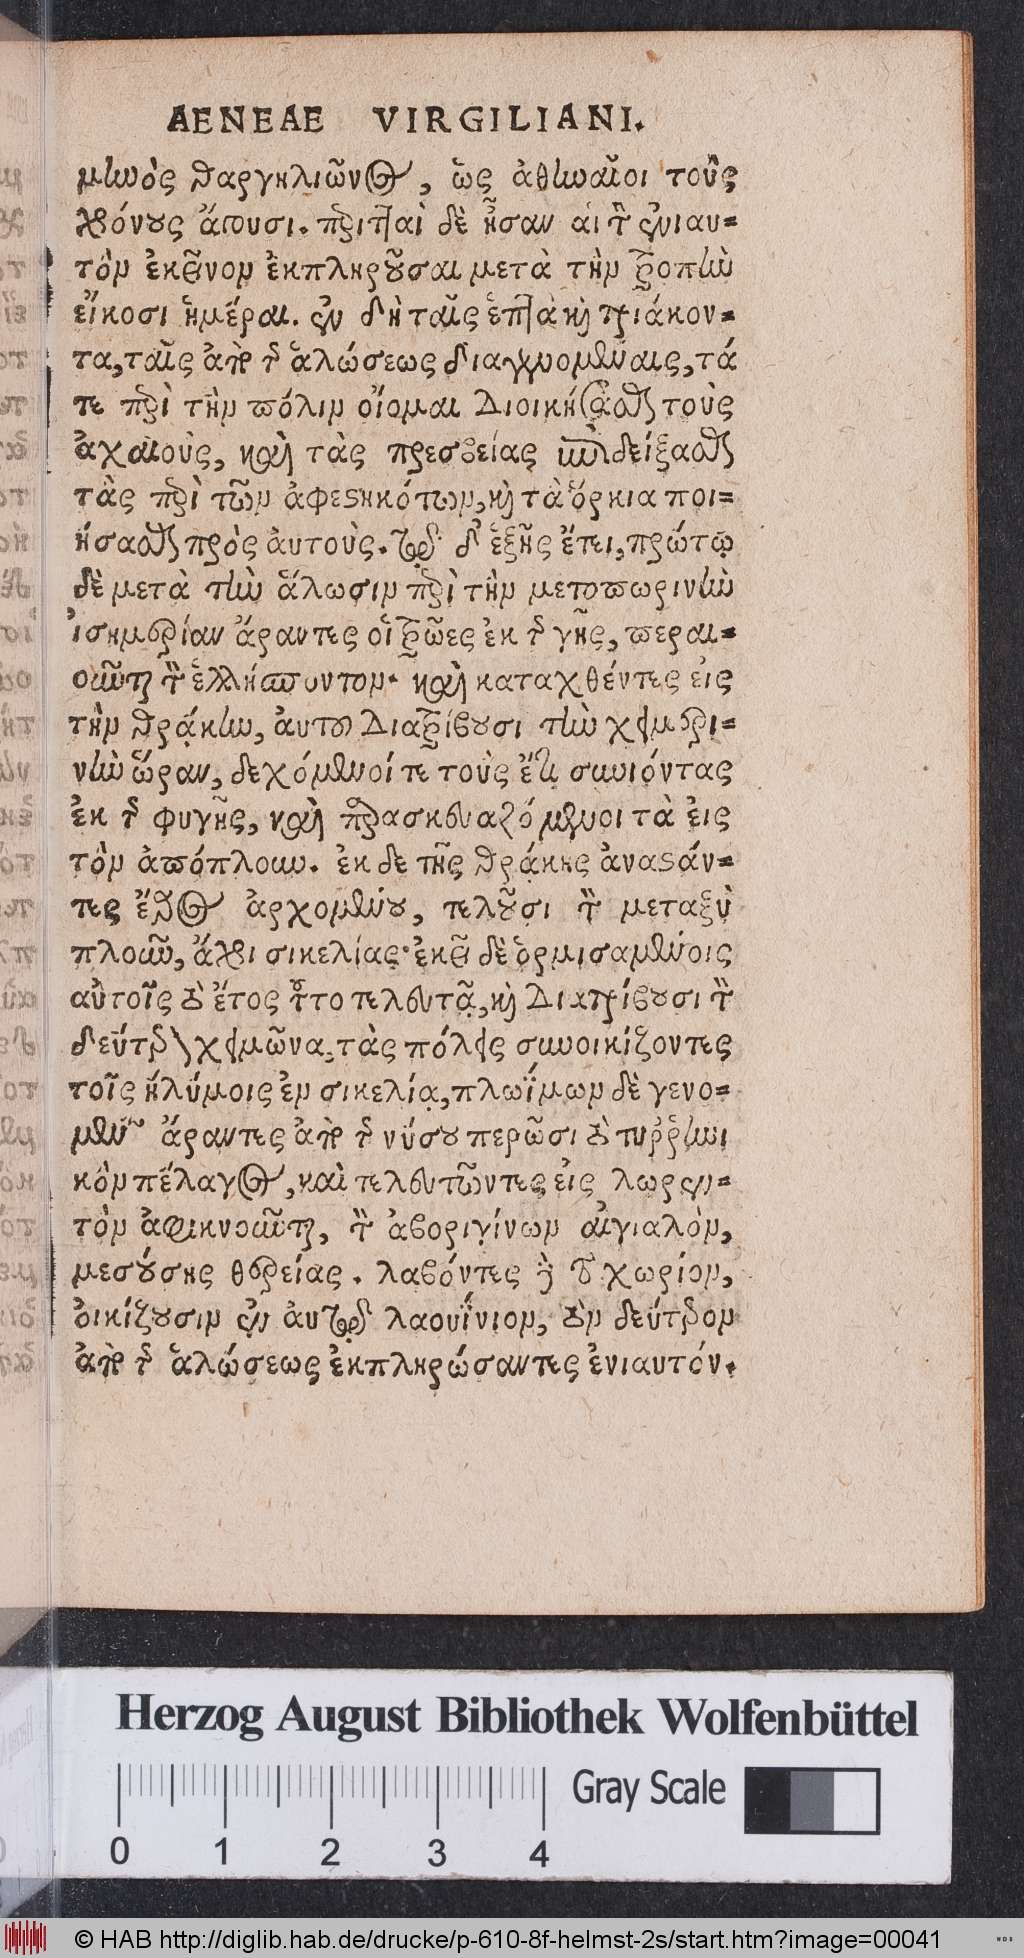 AENEAE VIRGILIANI.
μηνὸς θαργηλιῶνος, ὡς ἀθηναῖοι τοὺς
χρόνους ἄγουσι. περιτταὶ δὲ ἦσαν αἱ τὸν ἐνιαυ=
τὸν ἐκεῖνον ἐκπληροῦσαι μετὰ τὴν τροπὴν
εἴκοσι ἡμέραι. ἐν δὴ ταῖς ἑπτὰ καὶ τριάκον=
τα, ταῖς ἀπὸ τῆς ἁλώσεως διαγενομέναις, τά
τε περὶ τὴν πόλιν οἴομαι διοικήσασθαι τοὺς
ἀχαιοὺς, καὶ τὰς πρεσβείας ἐπιδείξασθαι
τὰς περὶ τῶν ἀφεστηκότων, καὶ τὰ ὅρκια ποι=
ήσασθαι πρὸς αὐτοὺς. τῷ δ' ἑξῆς ἔτει, πρώτῳ
δὲ μετὰ τὴν ἅλωσιν περὶ τὴν μετοπωρινὴν
ἰσημερίαν ἄραντες οἱ τρῶες ἐκ τῆς γῆς, περαι=
οῦνται τὸν ἑλλήσποντον. καὶ καταχθέντες εἰς
τὴν θρᾴκην, αὐτοῦ διατρίβουσι τὴν χειμερι=
νὴν ὥραν, δεχόμενοί τε τοὺς ἔτι συνιόντας
ἐκ τῆς φυγῆς, καὶ παρασκευαζόμενοι τὰ εἰς
τὸν ἀπόπλουν. ἐκ δε τῆς θρᾴκης ἀναστάν=
τες ἔαρος ἀρχομένου, τελοῦσι τὸν μεταξὺ
πλοῦν, ἄχρι σικελίας· ἐκεῖ δὲ ὁρμισαμένοις
αὐτοῖς τὸ ἔτος τοῦτο τελευτᾷ, καὶ διατρίβουσι τὸν
δεύτερον χειμῶνα, τὰς πόλεις συνοικίζοντες
τοῖς ἠλύμοις ἐν σικελίᾳ, πλωΐμων δὲ γενο=
μένων ἄραντες ἀπὸ τῆς νήσου περῶσι τὸ τυρῥηνι
κὸν πέλαγος, καὶ τελευτῶντες εἰς λωρεν=
τὸν ἀφικνοῦνται, τὸν ἀβοριγίνων αἰγιαλὸν,
μεσούσης θερείας. λαβόντες δὲ τὸ χωρίον,
οἰκίζουσιν ἐν αὐτῷ λαουΐνιον, τὸν δεύτερον
ἀπὸ τῆς ἁλώσεως ἐκπληρώσαντες ἐνιαυτόν.
Herzog August Bibliothek Wolfenbüttel
Gray Scale
0 1 2 3 4
© HAB http://diglib.hab.de/drucke/p-610-8f-helmst-2s/start.htm?image=00041